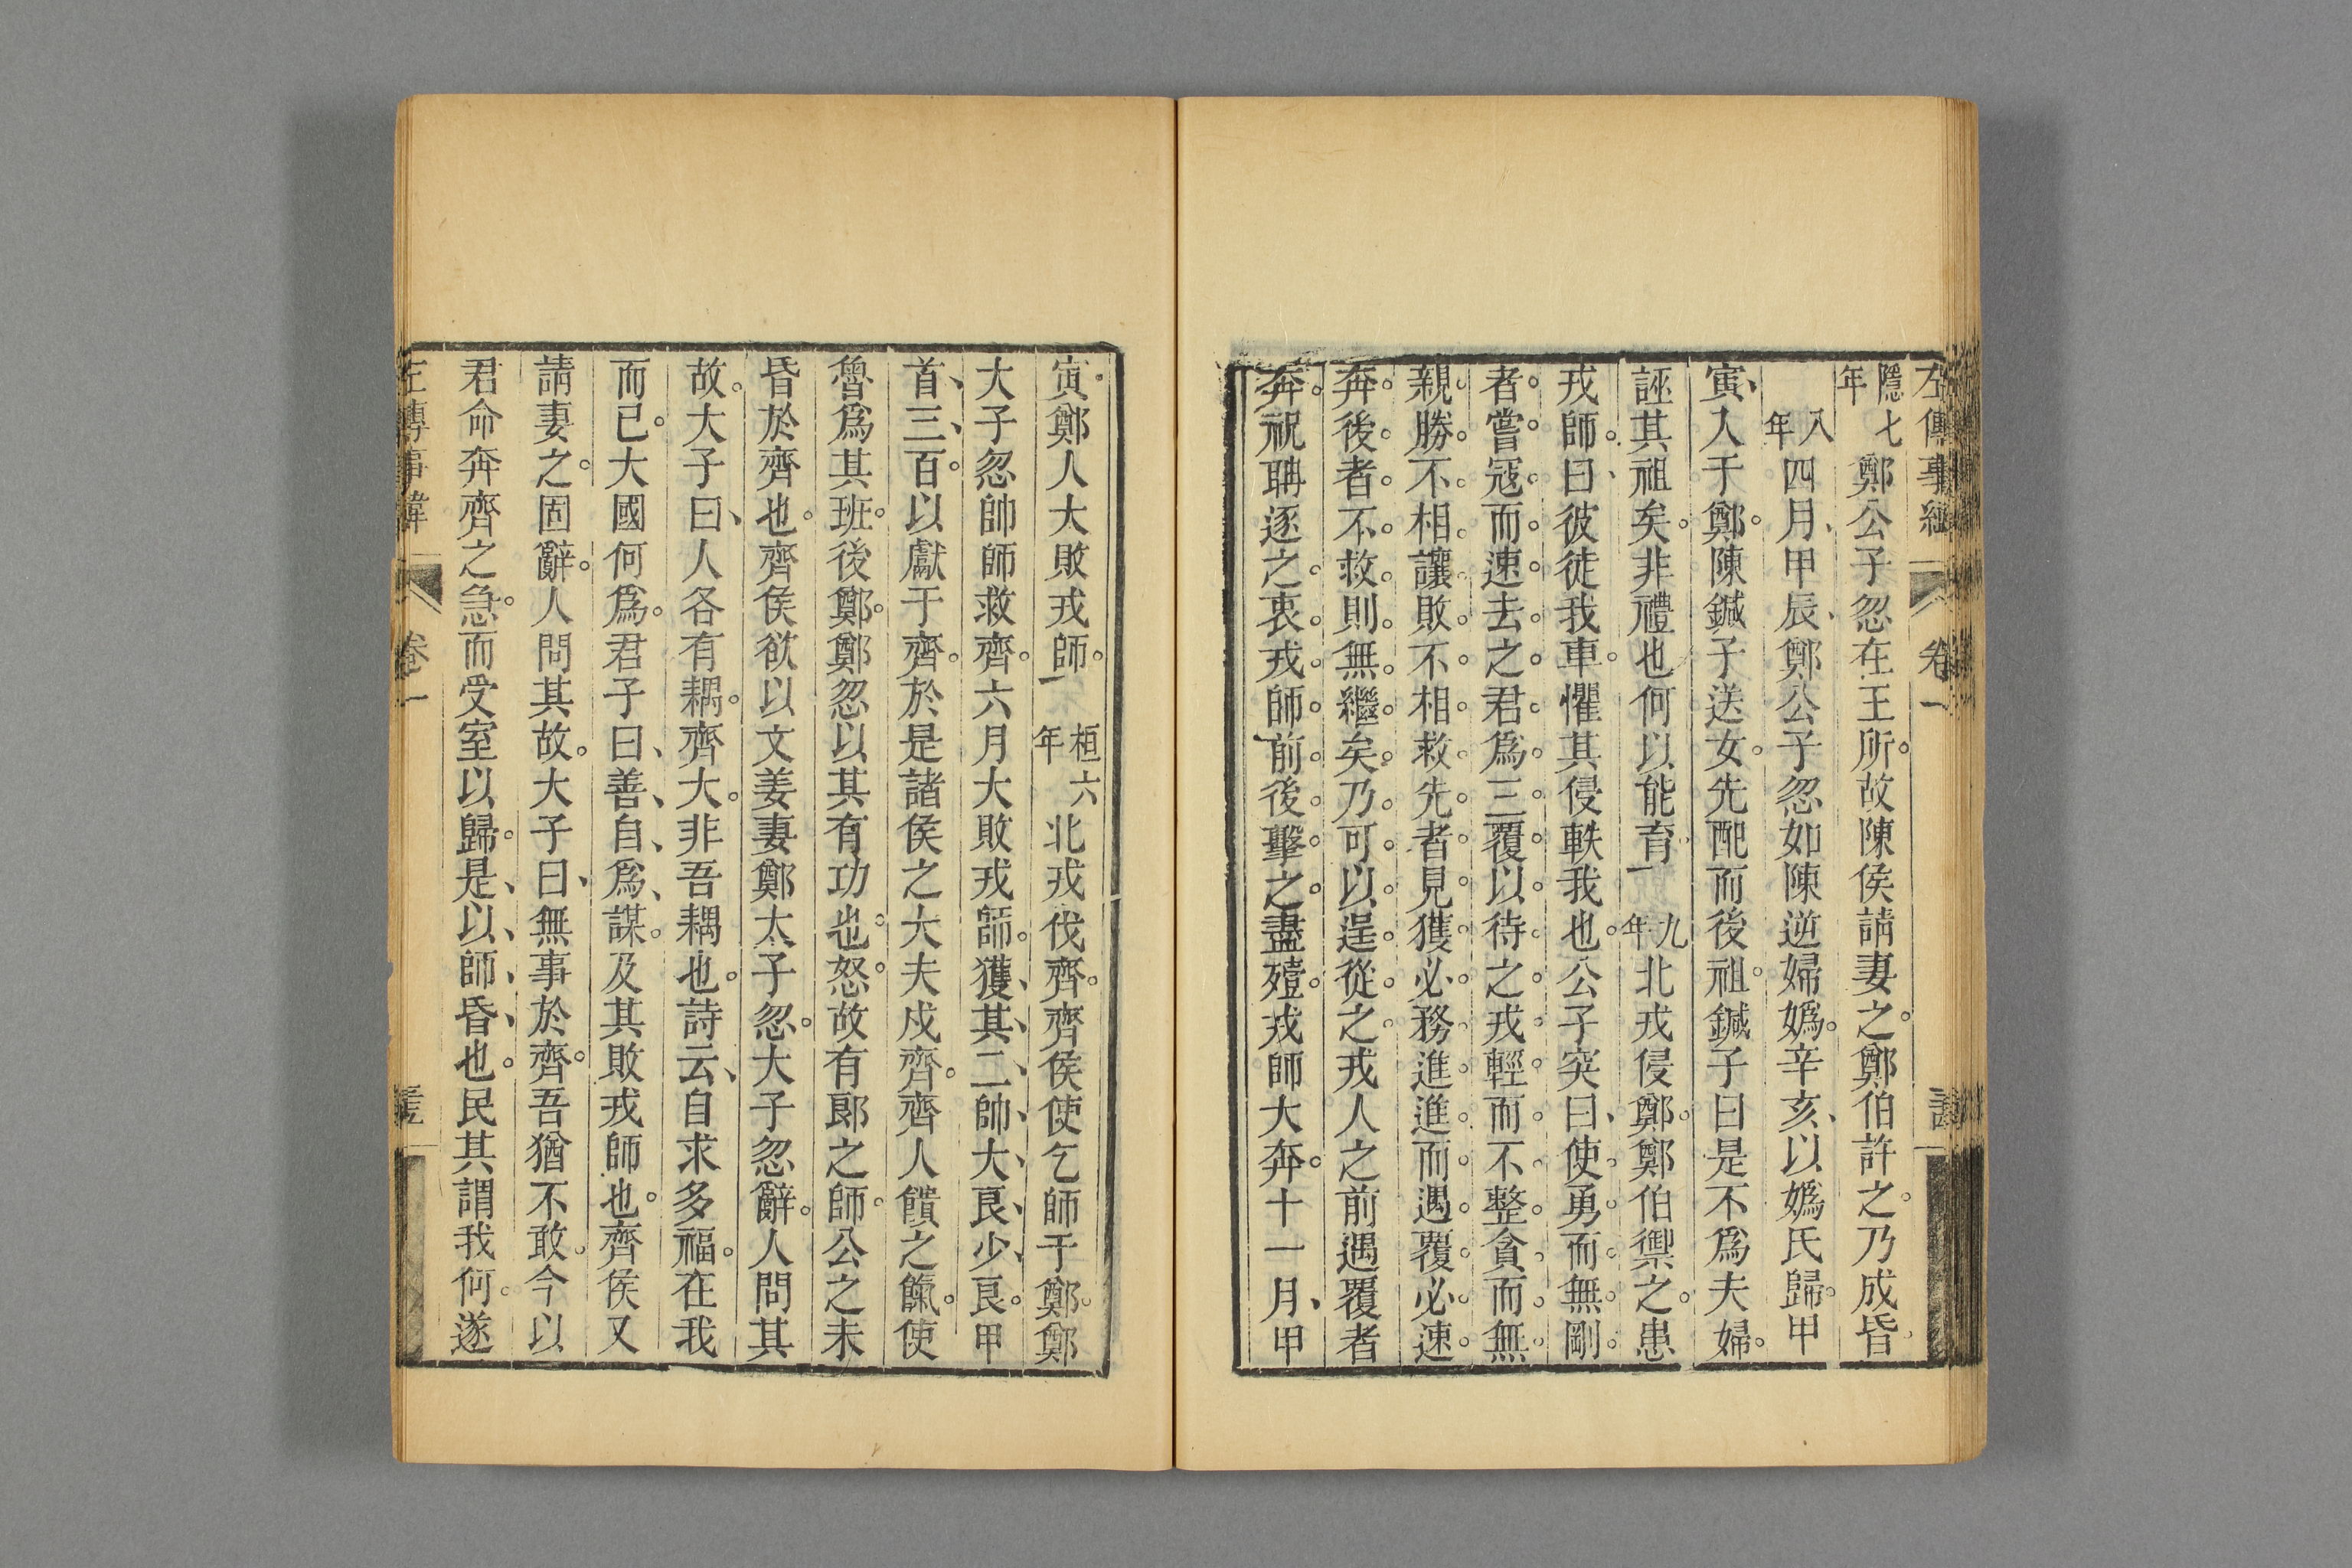 左傳事緯 卷一
隱七年 鄭公子忽在王所。故陳侯請妻之。鄭伯許之。乃成昏。
八年 四月、甲辰、鄭公子忽如陳逆婦嬀。辛亥、以嬀氏歸。甲
寅、入于鄭。陳鍼子送女。先配而後祖。鍼子曰是不爲夫婦。
誣其祖矣。非禮也何以能育 九年 北戎侵鄭。鄭伯禦之。患
戎師。曰、彼徒我車。懼其侵軼我也。公子突曰、使勇而無剛
者。嘗寇而速去之。君爲三覆以待之。戎輕而不整。貪而無
親。勝不相讓。敗不相救。先者見獲必務進。進而遇覆必速
奔。後者不救。則無繼矣。乃可以逞。從之。戎人之前遇覆者
奔。祝聃逐之。衷戎師。前後擊之。盡殪。戎師大奔。十一月、甲
寅。鄭人大敗戎師。 桓六年 北戎伐齊。齊侯使乞師于鄭。鄭
大子忽帥師救齊。六月大敗戎師。獲其二帥、大良、少良。甲
首、三百。以獻于齊。於是諸侯之大夫戍齊。齊人饋之餼。使
魯爲其班。後鄭。鄭忽以其有功也。怒。故有郞之師。公之未
昏於齊也。齊侯欲以文姜妻鄭太子忽。大子忽辭。人問其
故。大子曰、人各有耦。齊大。非吾耦也。詩云、自求多福。在我
而已。大國何爲。君子曰、善、自、爲、謀。及其敗戎師也。齊侯又
請妻之。固辭。人問其故。大子曰、無事於齊。吾猶不敢。今以
君命奔齊之急。而受室以歸。是、以、師、昏、也。民其謂我何。遂
左傳事緯 卷一